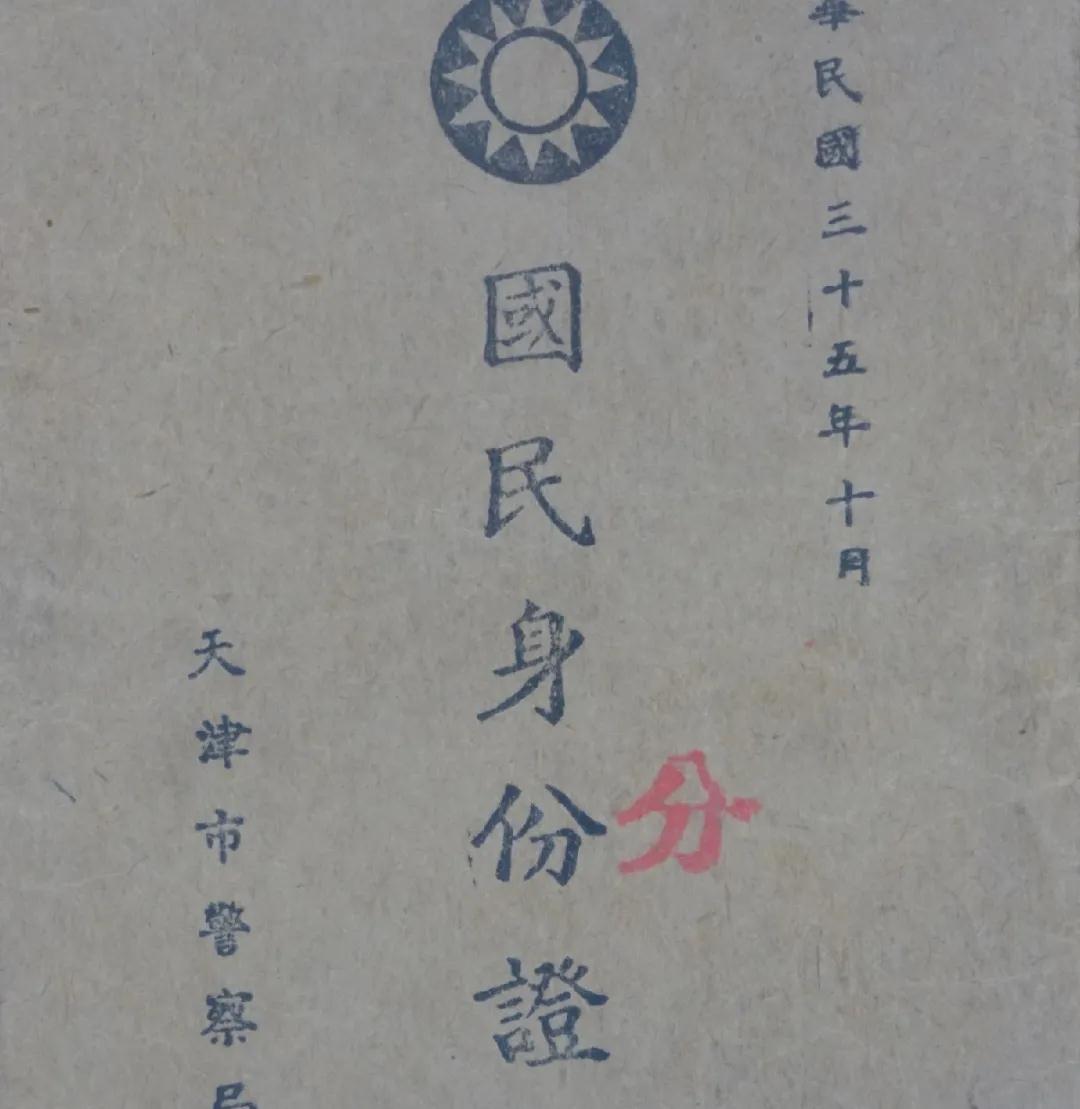 華民國三十五年十月
國民身份證
分
天津市警察局